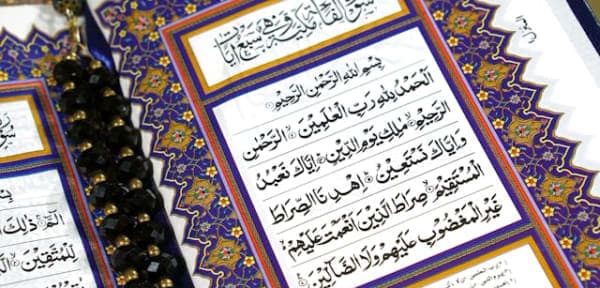 سورة الفاتحة مكية وهي سبع آيات
بِسْمِ اللهِ الرَّحْمٰنِ الرَّحِيمِ
اَلْحَمْدُ لِلّٰهِ رَبِّ الْعٰلَمِينَ الرَّحْمٰنِ
الرَّحِيمِ مٰلِكِ يَوْمِ الدِّينِ اِيَّاكَ نَعْبُدُ
وَاِيَّاكَ نَسْتَعِينُ اِهْدِنَا الصِّرَاطَ
الْمُسْتَقِيمَ صِرَاطَ الَّذِينَ اَنْعَمْتَ عَلَيْهِمْ
غَيْرِ الْمَغْضُوبِ عَلَيْهِمْ وَلَا الضَّالِّينَ
الٓمٓ ذٰلِكَ
لِلْمُتَّقِينَ